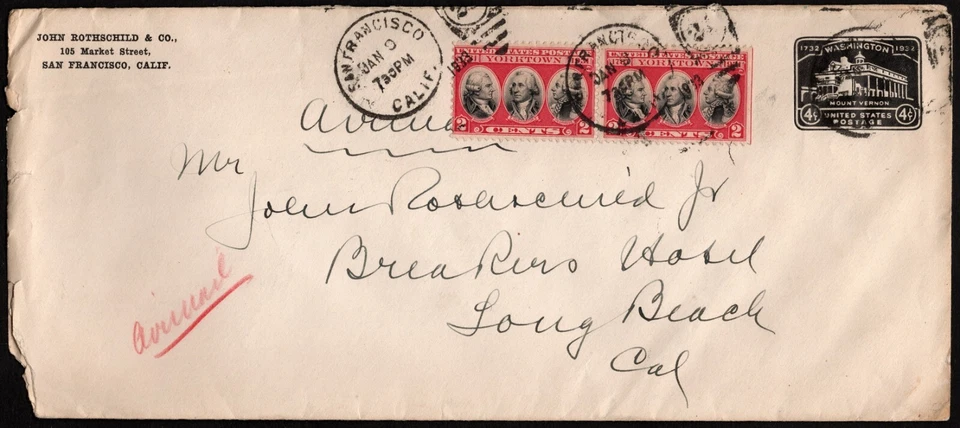 JOHN ROTHSCHILD & CO.,
105 Market Street,
SAN FRANCISCO, CALIF.
SAN FRANCISCO
CALIF.
JAN
730PM
UNITED STATES POSTAGE
YORKTOWN
2 CENTS 2
UNITED STATES POSTAGE
YORKTOWN
2 CENTS 2
FRANCISCO
JAN
1732 WASHINGTON 1932
MOUNT VERNON
4¢ UNITED STATES 4¢
POSTAGE
Airmail
Mr
John Rothschild Jr
Breakers Hotel
Long Beach
Cal
Airmail